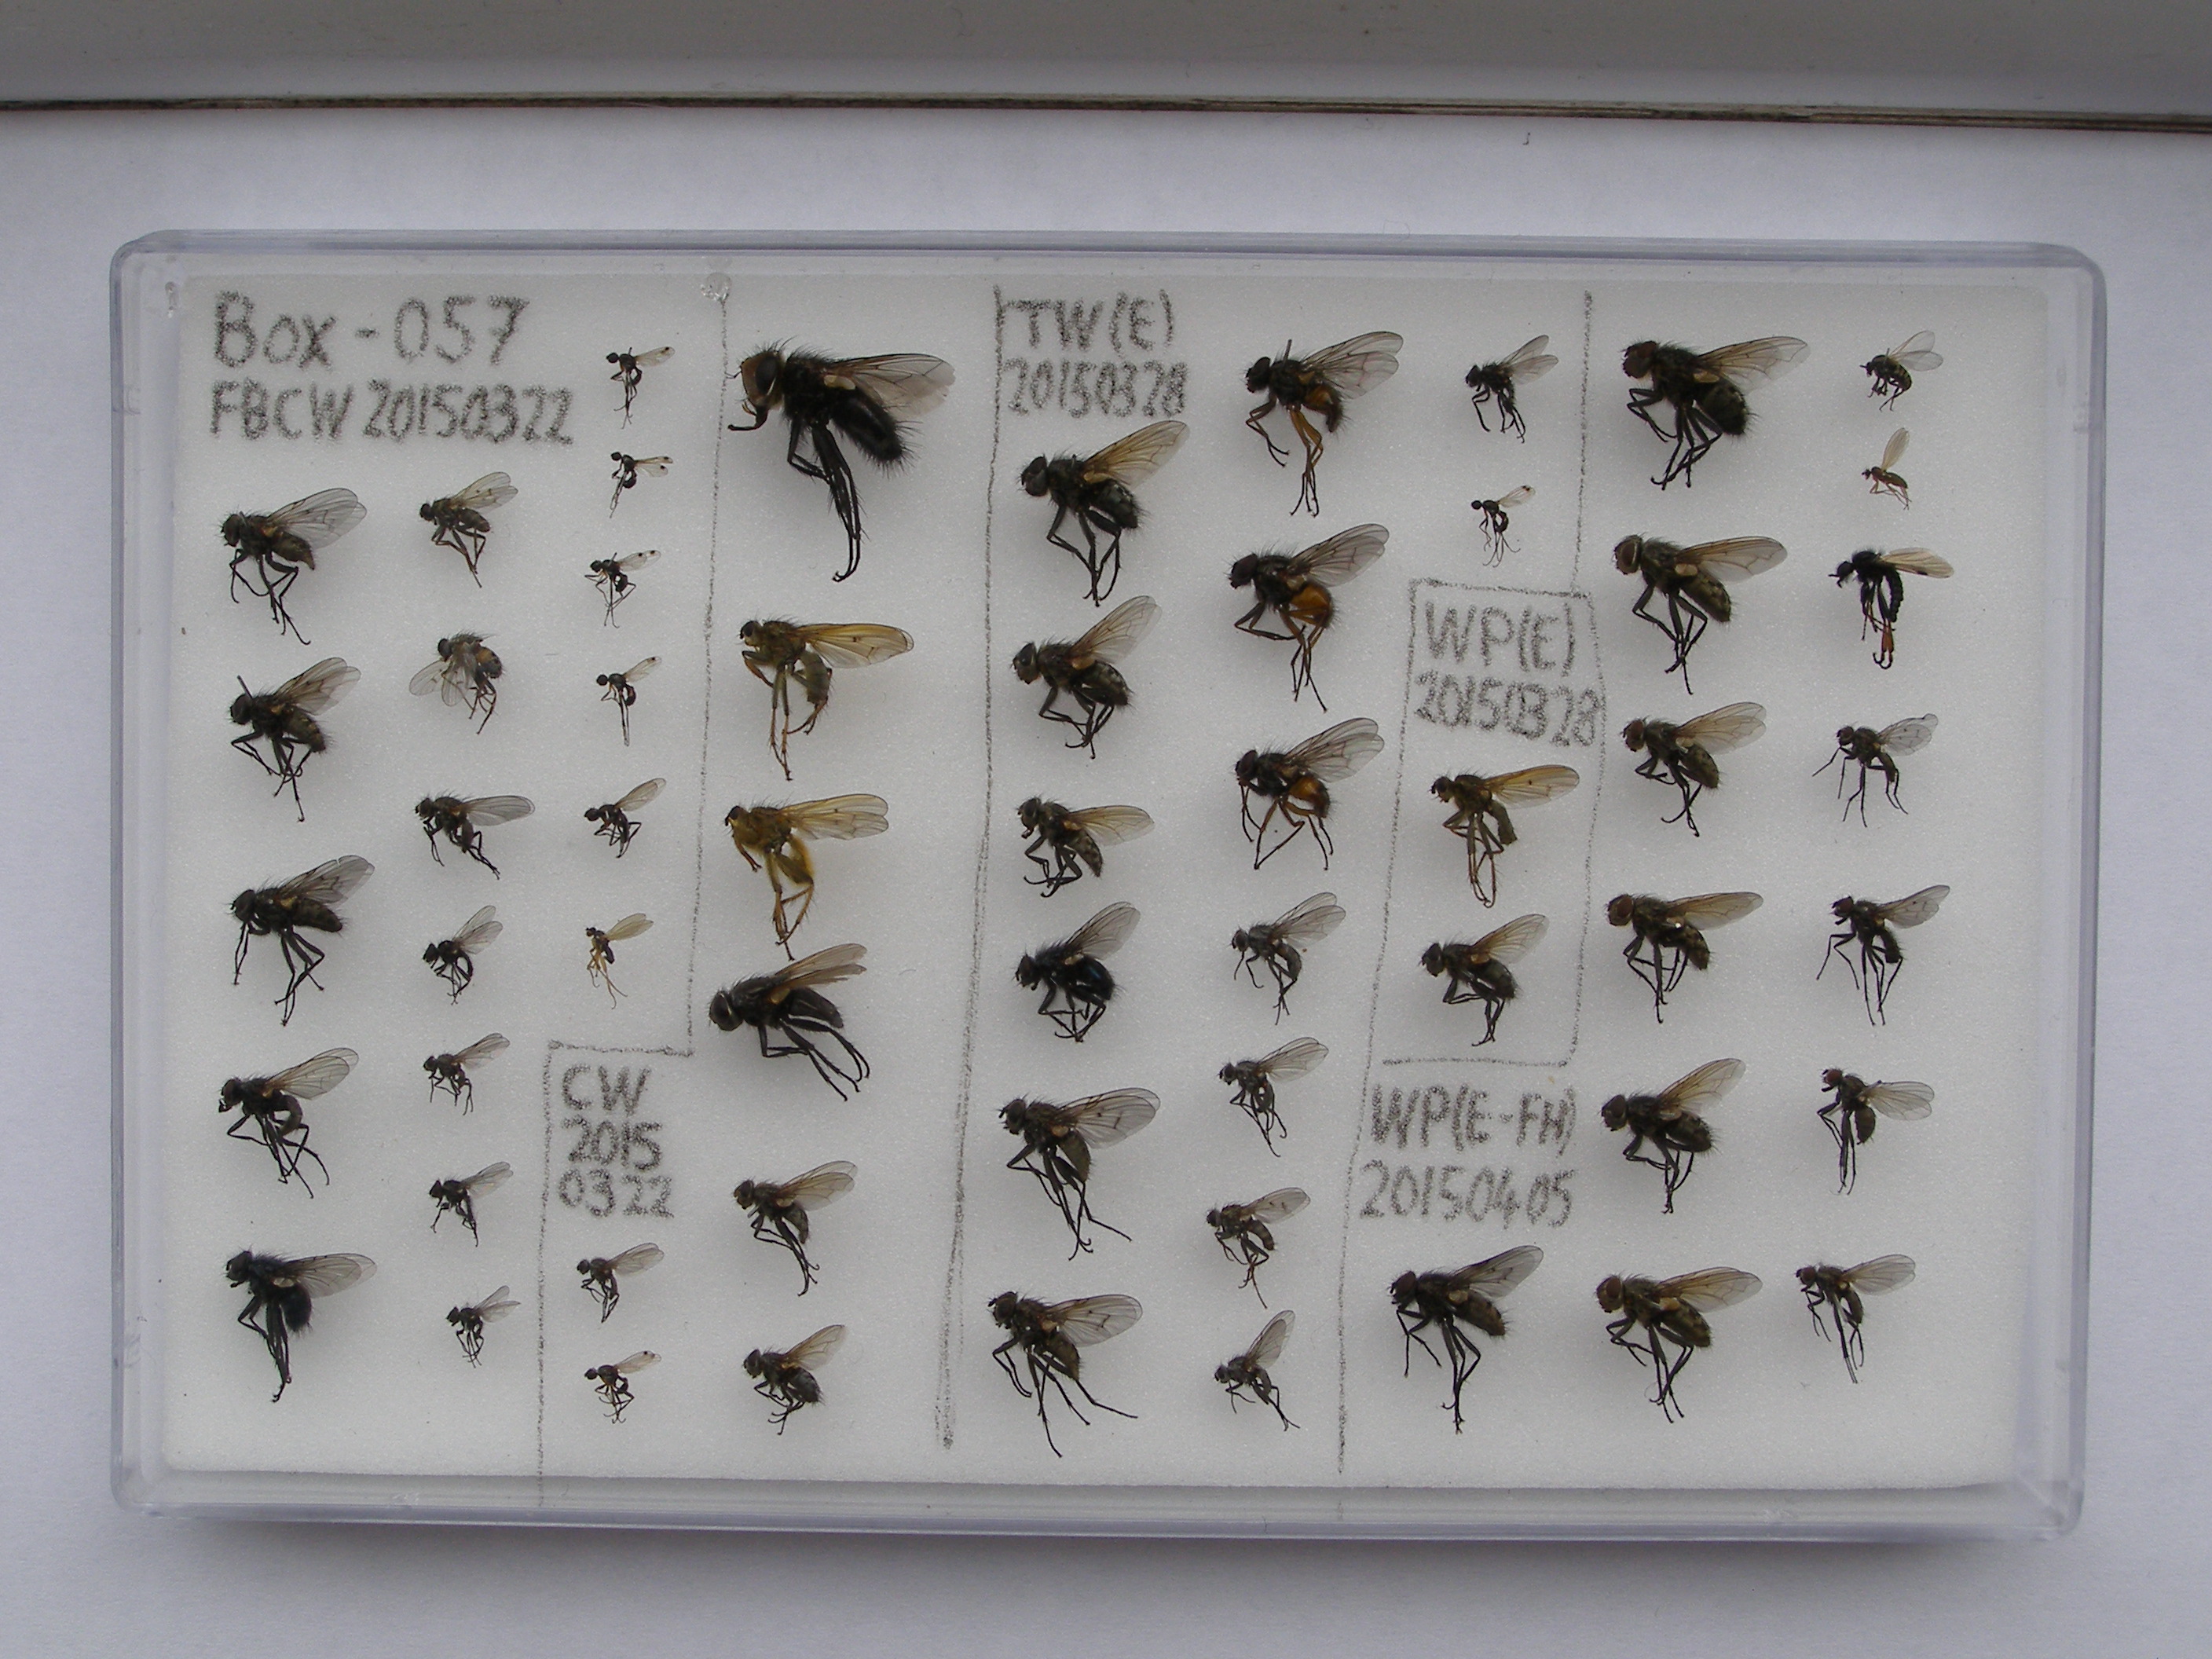 Box-057
FBCW 20150322
CW
2015
0322
TW(E)
20150328
WP(E)
20150328
WP(E-FH)
20150405